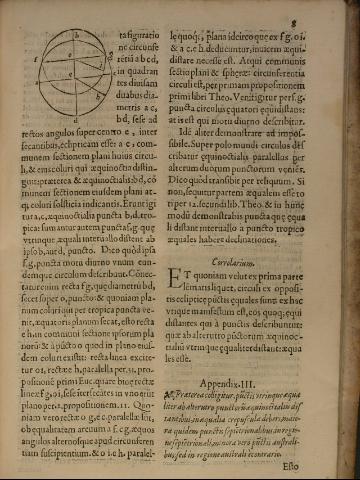 8
ta figuratio
ne circunfe
rētia a b c d,
in quadran
tes diuisam
duabus dia-
metris a c,
b d, sese ad
rectos angulos super centro e, inter
secantibus, eclipticam esse: a c, com-
munem sectionem plani huius circu-
li, & eius coluri qui æquinoctia distin-
guit: præterea & æquinoctialis: b d, cō
munem sectionem eiusdem plani at-
q; coluri solsticia indicantis. Erunt igi
tur a, c, æquinoctialia puncta b, d, tro-
pica: sumantur autem puncta f, g quę
vtrinque æquali interuallo distent ab
ipso b, aut d, puncto. Dico quòd ipsa
f, g, puncta motu diurno vnum eun-
demque circulum describunt. Cōnec-
tatur enim recta f g, quę diametrū b d,
secet super o, puncto: & quoniam pla-
num coluri qui per tropica puncta ve-
nit, æquatoris planum secat, esto recta
e h, in communi sectione ipsorum pla
norū: & à pūcto o quod in plano eius-
dem coluri existit: recta linea excite-
tur o i, rectæ e h, parallela per .31. pro-
positionē primi Euc. quare binę rectæ
lineæ f g, o i, sese intersecātes in vno erūt
plano per .2. propositionem .11. Quo-
niam vero rectæ o g, e c, parallelæ sūt,
ob equalitatem arcuum a f, c g, æquos
angulos alternosque apud circunferen
tiam suscipientium, & o i, e h, paralel-
le quoq;, plana idcirco que ex f g, o i,
& a c, e h, deducuntur, inuicem æqui-
distare necesse est. Atqui communis
sectio plani & spheræ: circunferentia
circuli est, per primam propositionem
primi libri Theo. Venit igitur per f g,
puncta circulus equatori equidistans:
at is est qui motu diurno describitur.
Idē aliter demonstrare ad impos-
sibile. Super polo mundi circulus des-
cribatur equinoctialis parallelus per
alterum duorum punctorum veniēs.
Dico quòd transibit per reliquum. Si
non, sequitur partem æqualem esse to
ti per 12. secundi lib. Theo. & in hunc
modū demonstrabis puncta quę equa
li distant interuallo a puncto tropico
æquales habere declinationes.
Corrolarium.
ET quoniam velut ex prima parte
lēmatis liquet, circuli ex opposi-
tis eclipticę pūctis equales sunt: ex huc
vtrique manifestum est, eos quoq; equi
distantes qui à punctis describuntur:
quæ ab alterutro pūctorum æquinoc-
tialiū vtrinque equaliter distant: æqua
les esse.
Appendix. III.
Præterea colligitur, pūctis vtrinque æqua
liter ab alterutro punctorū æquinoctialiū dis
tantibus, inæqualia crepuscula deberi, maio-
ra quidem punctis septētrionalibus in regio-
ne septētrionali, minora vero pūctis australi-
bus, sed in regione australi è contrario.
Esto